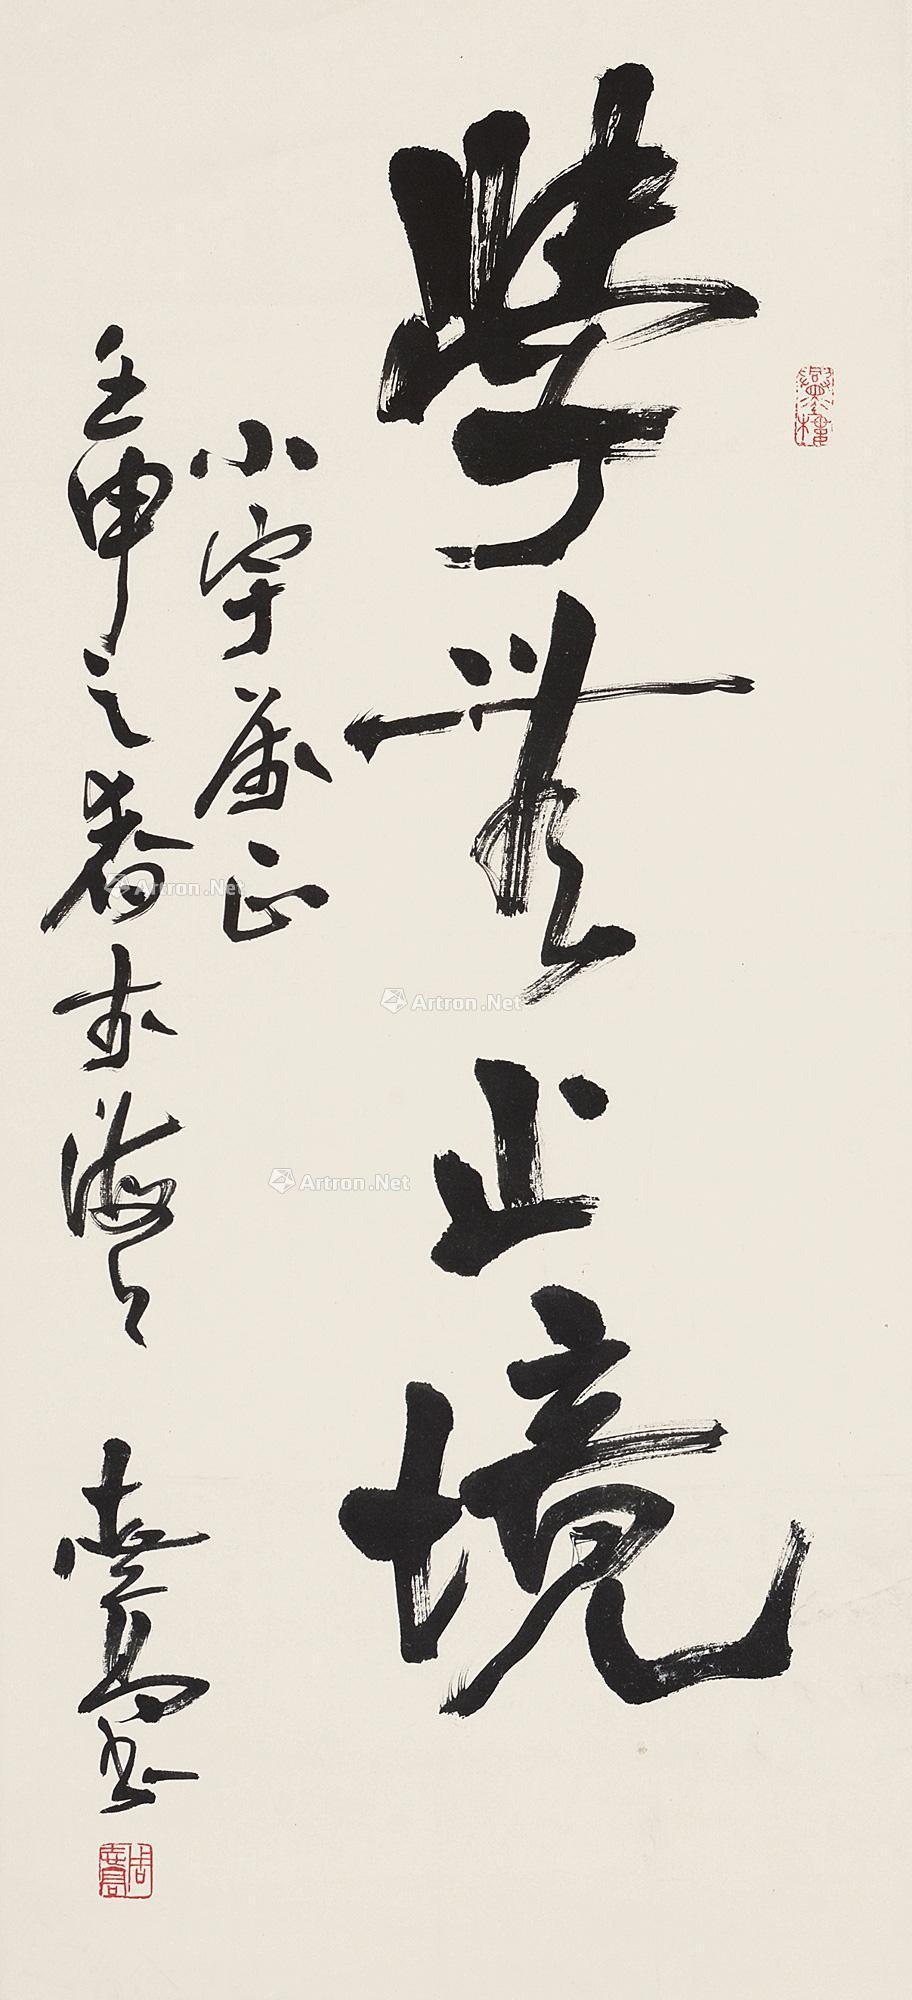 學無止境
小宇属正
壬申之春于海上
志高書
周志高
Artron.Net
Artron.Net
Artron.Net